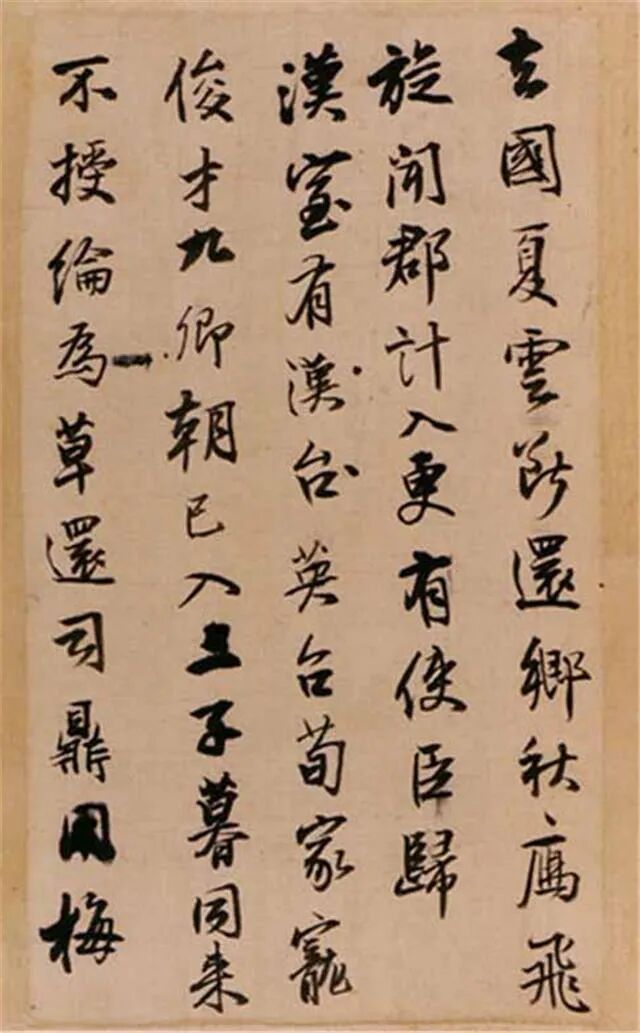 去國夏雲斷還鄉秋鴈飛
旋聞郡計入更有使臣歸
漢室有漢台英台荀家寵
俊才九卿朝已入三子暮同来
不授綸為草還司鼎用梅